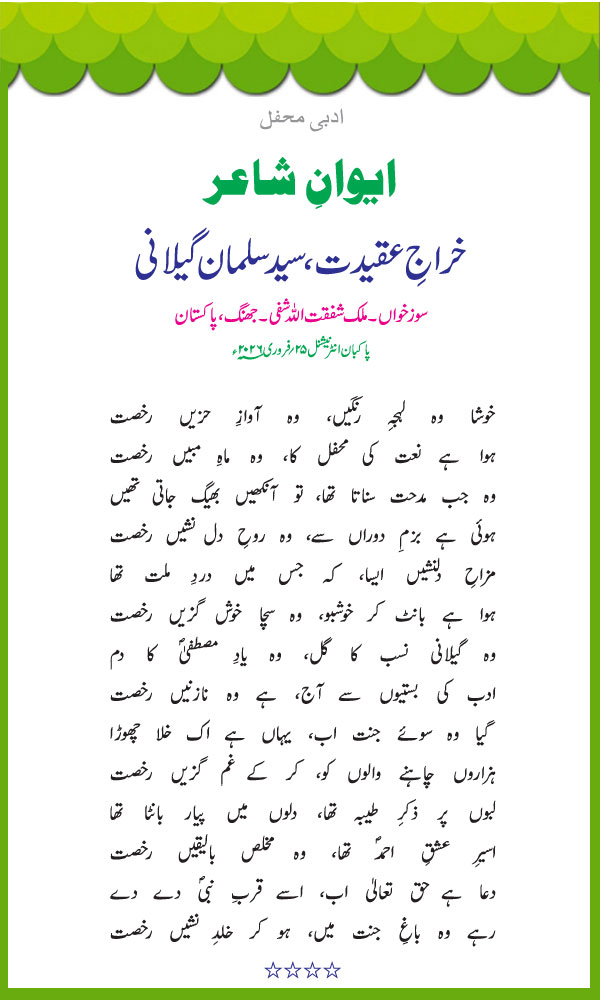 ادبی محفل
ایوانِ شاعر
خراجِ عقیدت، سید سلمان گیلانی
سوز خواں۔ ملک شفقت اللہ شفی۔ جھنگ، پاکستان
پاکبان انٹرنیشنل ۲۵/فروری ۲۰۲۶ء
خوشا وہ لہجۂ رنگیں، وہ آوازِ حزیں رخصت
ہوا ہے نعت کی محفل کا، وہ ماہِ مبیں رخصت
وہ جب مدحت سناتا تھا، تو آنکھیں بھیگ جاتی تھیں
ہوئی ہے بزمِ دوراں سے، وہ روحِ دل نشیں رخصت
مزاحِ دلنشیں ایسا، کہ جس میں دردِ ملت تھا
ہوا ہے بانٹ کر خوشبو، وہ سچا خوش گزیں رخصت
وہ گیلانی نسب کا گل، وہ یادِ مصطفیٰؐ کا دم
ادب کی بستیوں سے آج، ہے وہ نازنیں رخصت
گیا وہ سوئے جنت اب، یہاں ہے اک خلا چھوڑا
ہزاروں چاہنے والوں کو، کر کے غم گزیں رخصت
لبوں پر ذکرِ طیبہ تھا، دلوں میں پیار بانٹا تھا
اسیرِ عشقِ احمدؐ تھا، وہ مخلص بالیقیں رخصت
دعا ہے حق تعالیٰ اب، اسے قربِ نبیؐ دے دے
رہے وہ باغِ جنت میں، ہو کر خلدِ نشیں رخصت
☆☆☆☆